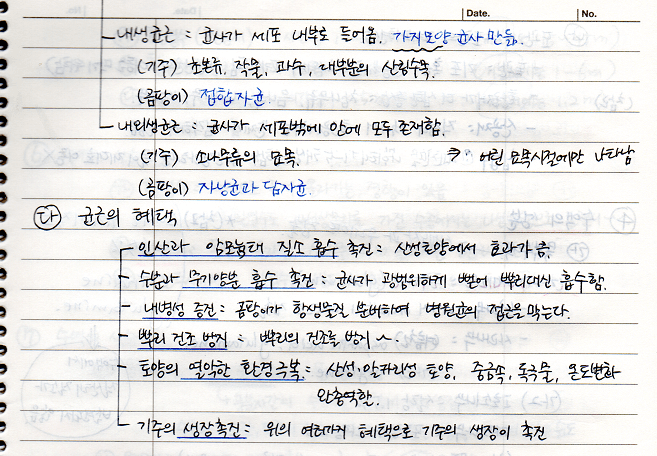 Date. No.
내생균근 = 균사가 세포 내부로 들어옴. 가지모양 균사 만듦.
(기주) 초본류, 작물, 과수, 대부분의 산림수목.
(곰팡이) 접합자균.
내외생균근 = 균사가 세포밖에 안에 모두 존재함.
(기주) 소나무류의 묘목. 어린 묘목시절에만 나타남
(곰팡이) 자낭균과 담자균.
다 균근의 혜택
인산과 암모늄태 질소 흡수 촉진 = 산성토양에서 효과가 큼.
수분과 무기양분 흡수 촉진 = 균사가 광범위하게 뻗어 뿌리대신 흡수함.
내병성 증진 = 곰팡이가 항생물질 분비하여 병원균의 접근을 막는다.
뿌리 건조 방지 = 뿌리의 건조를 방지
토양의 열악한 환경극복 = 산성·알카리성 토양, 중금속, 독극물, 온도변화
완충역할.
기주의 생장촉진 = 위의 여러가지 혜택으로 기주의 생장이 촉진